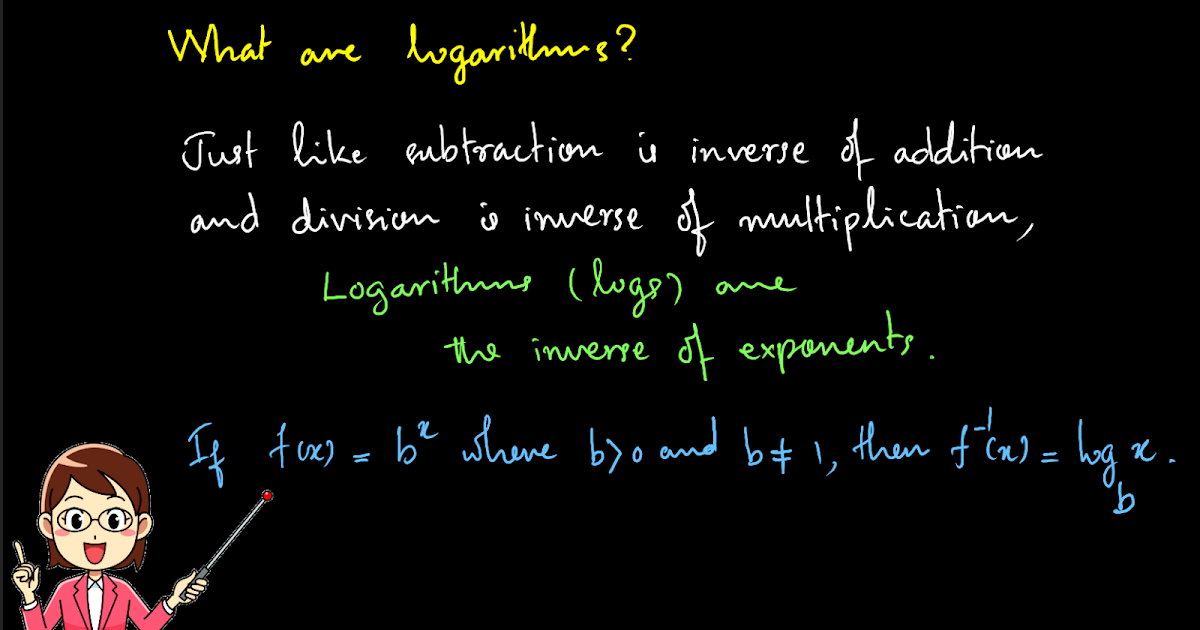 What are logarithms?
Just like subtraction is inverse of addition
and division is inverse of multiplication,
Logarithms (logs) are
the inverse of exponents.
If f(x) = bˣ where b>0 and b≠1, then f⁻¹(x) = log_b x.